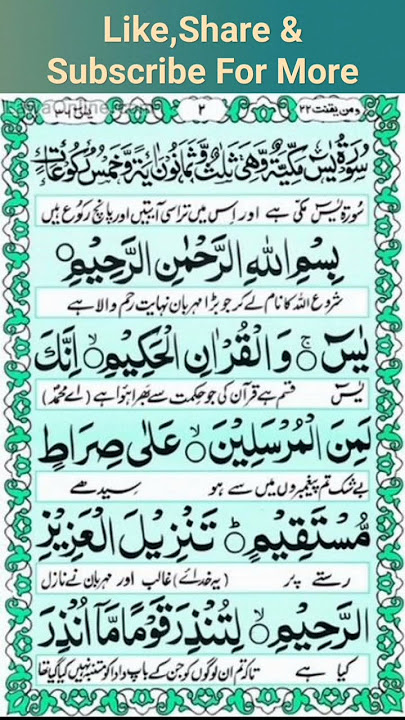 Like,Share &
Subscribe For More
ومن يقنت ٢٢
٢
يٰسٓ ٣٦
سُوْرَةُ يٰسٓ مَكِّيَّةٌ وَّهِىَ ثَلٰثٌ وَّثَمَانُوْنَ اٰيَةً وَّخَمْسُ رُكُوْعَاتٍ
سورۃ یٰسٓ مکی ہے اور اس میں تراسی آیتیں اور پانچ رکوع ہیں
بِسْمِ اللهِ الرَّحْمٰنِ الرَّحِيْمِ
شروع اللہ کا نام لے کر جو بڑا مہربان نہایت رحم والا ہے
يٰسٓ ۚ وَالْقُرْاٰنِ الْحَكِيْمِ ۙ اِنَّكَ
یٰسٓ قسم ہے قرآن کی جو حکمت سے بھرا ہوا ہے (اے محمدؐ)
لَمِنَ الْمُرْسَلِيْنَ ۙ عَلٰى صِرَاطٍ
بے شک تم پیغمبروں میں سے ہو سیدھے
مُّسْتَقِيْمٍ ؕ تَنْزِيْلَ الْعَزِيْزِ
رستے پر (یہ خدائے) غالب اور مہربان نے نازل
الرَّحِيْمِ ۙ لِتُنْذِرَ قَوْمًا مَّاۤ اُنْذِرَ
کیا ہے تاکہ تم ان لوگوں کو جن کے باپ دادا کو متنبہ نہیں کیا گیا تھا